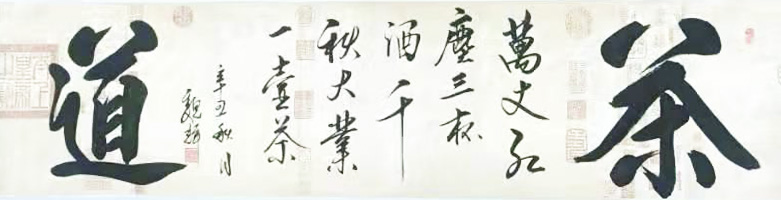 茶
萬丈紅
塵三杯
酒千
秋大業
一壺茶
辛丑秋月
魏
道